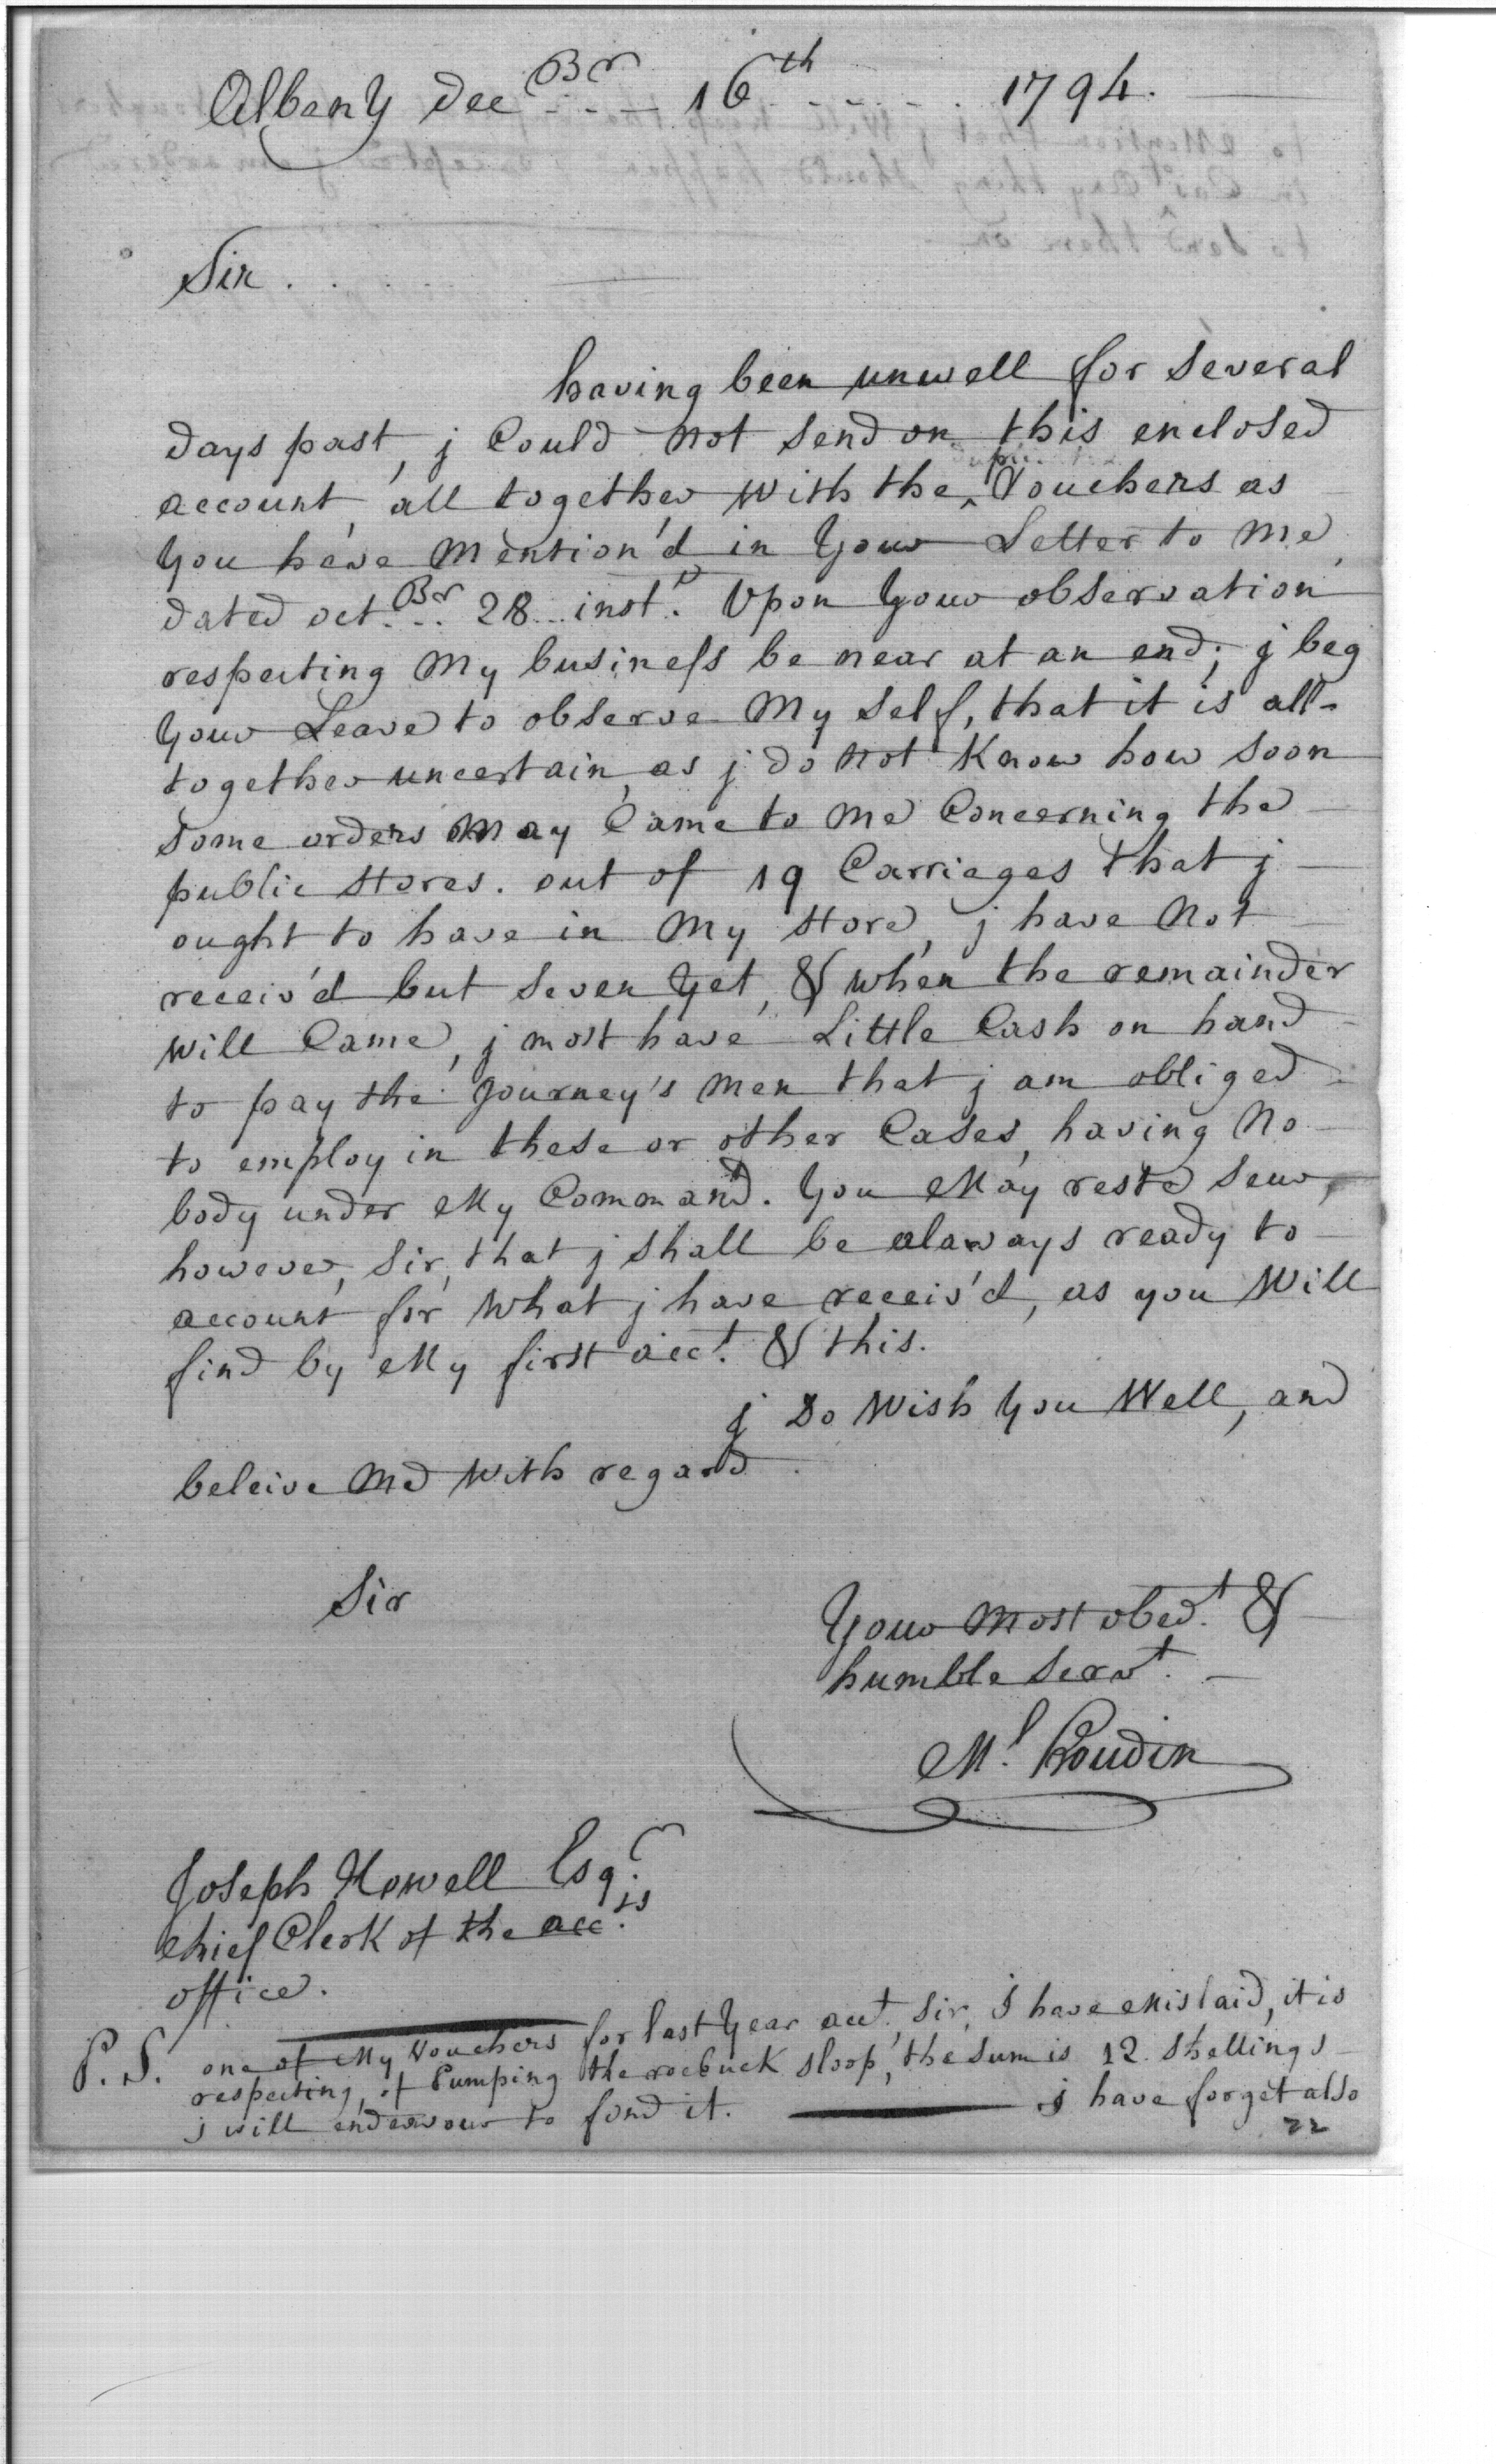 Albany decBr 16th 1794.
Sir
having been unwell for several
days past, j Could not send on this enclosed
account, all together with the ^ Vouchers as
you have Mention'd in your Letter to Me,
dated octBr 28 instt. Upon your observation
respecting My business be near at an end; j beg
your Leave to observe My self, that it is all-
together uncertain, as j do not Know how soon
some orders May Came to me Concerning the
public stores. out of 19 Carriages that j
ought to have in My store, j have Not
receiv'd but seven yet, & when the remainder
will Came, j most have Little Cash on hand
to pay the Journey's men that j am obliged
to employ in these or other Cases, having No
body under My Command. You May reste seur,
however, Sir, that j shall be alaways ready to
account for what j have receiv'd, as you Will
find by My first acct. & this.
j Do Wish you Well, and
beleive Me With regard
Sir
Your most obedt. &
humble servt.
Ml.
Joseph Howell Esqr.
chief Clerk of the accts.
office.
P.S. one of My Vouchers for last year acct., Sir, I have Mislaid, it is
respecting, of Pumping the roebuck sloop, the sum is 12 shellings
j will endeavour to fond it. I have forget also
22
to Mention that j Will keep the Vouchers
in Cas^ any thing should happen
to send them on